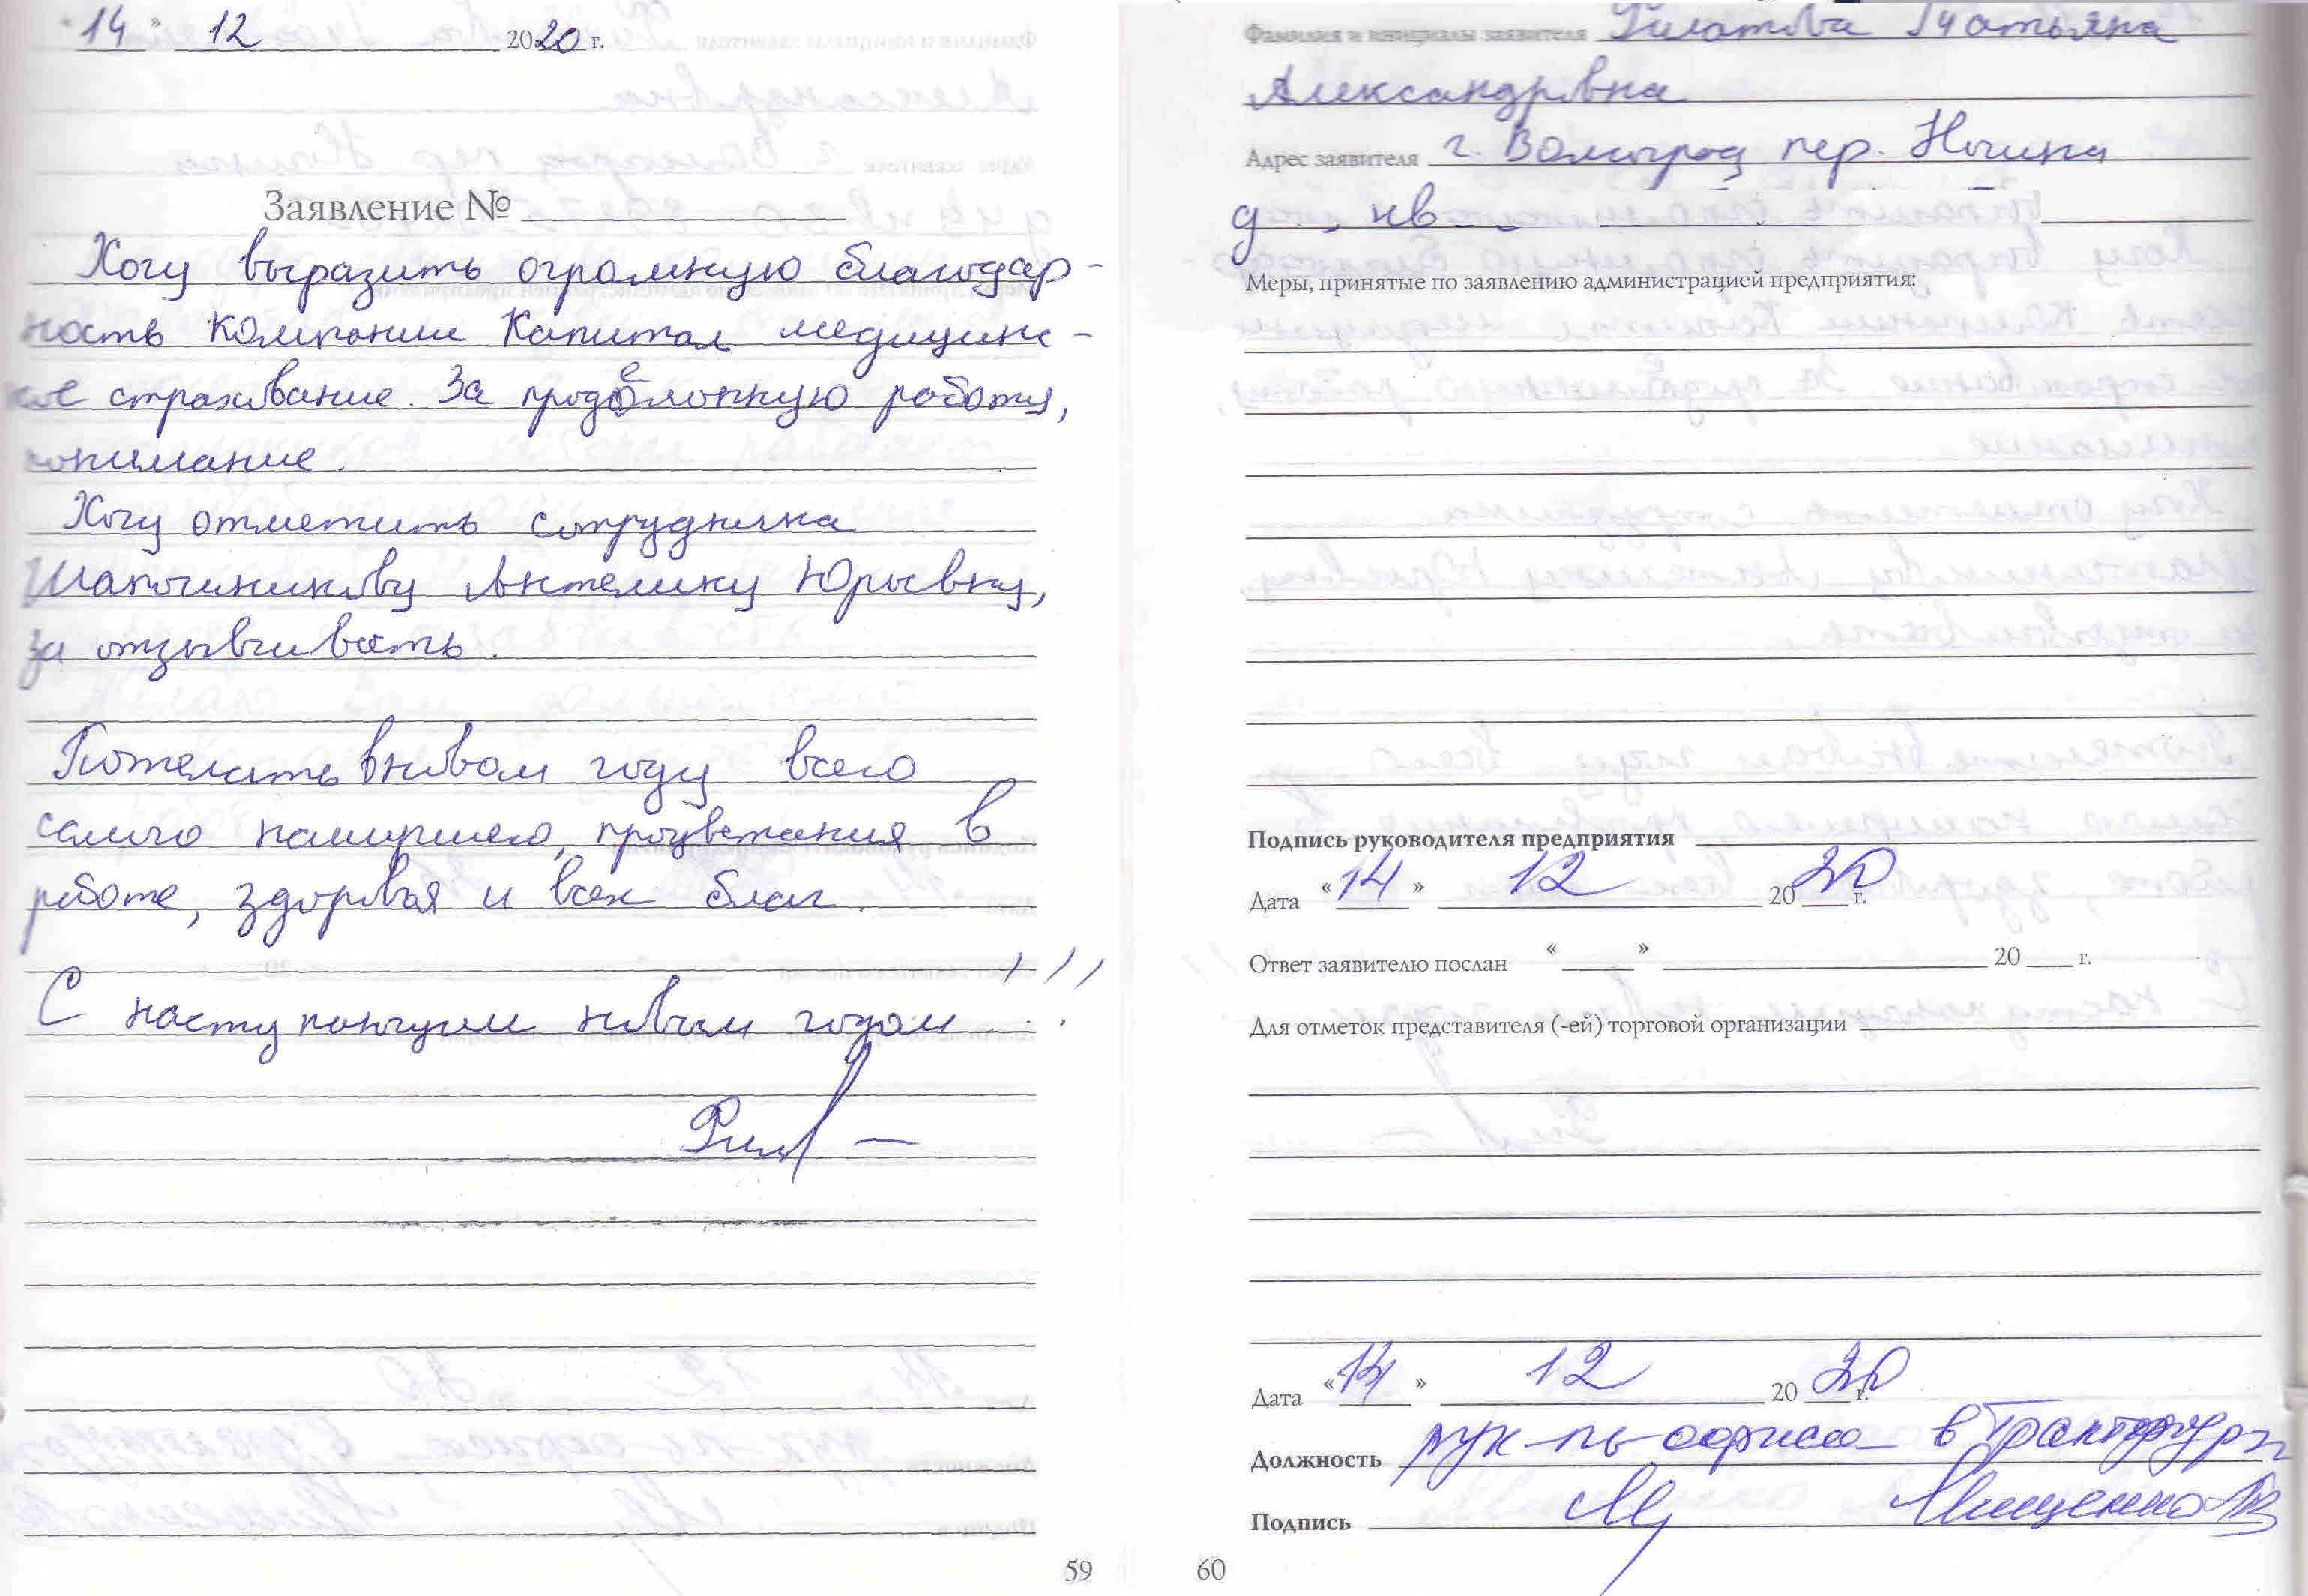 "14" 12 2020 г.
Заявление №
Хочу выразить огромную благодар-
ность компании Капитал медицинс-
кое страхование. За проделанную работу,
понимание.
Хочу отметить сотрудника
Шапошникову Анжелику Юрьевну,
за отзывчивость.
Пожелать в новом году всего
самого наилучшего, процветания в
работе, здоровья и всех благ.
С наступающим новым годом!!!
59
Фамилия и инициалы заявителя Филатова Татьяна
Александровна
Адрес заявителя г. Волгоград пер. Ногина
д , кв
Меры, принятые по заявлению администрацией предприятия:
Подпись руководителя предприятия
Дата «14» 12 2020 г.
Ответ заявителю послан « » 20 г.
Для отметок представителя (-ей) торговой организации
Дата «14» 12 2020 г.
Должность рук-ль офиса в Тракторозав
Подпись Мищенко
60